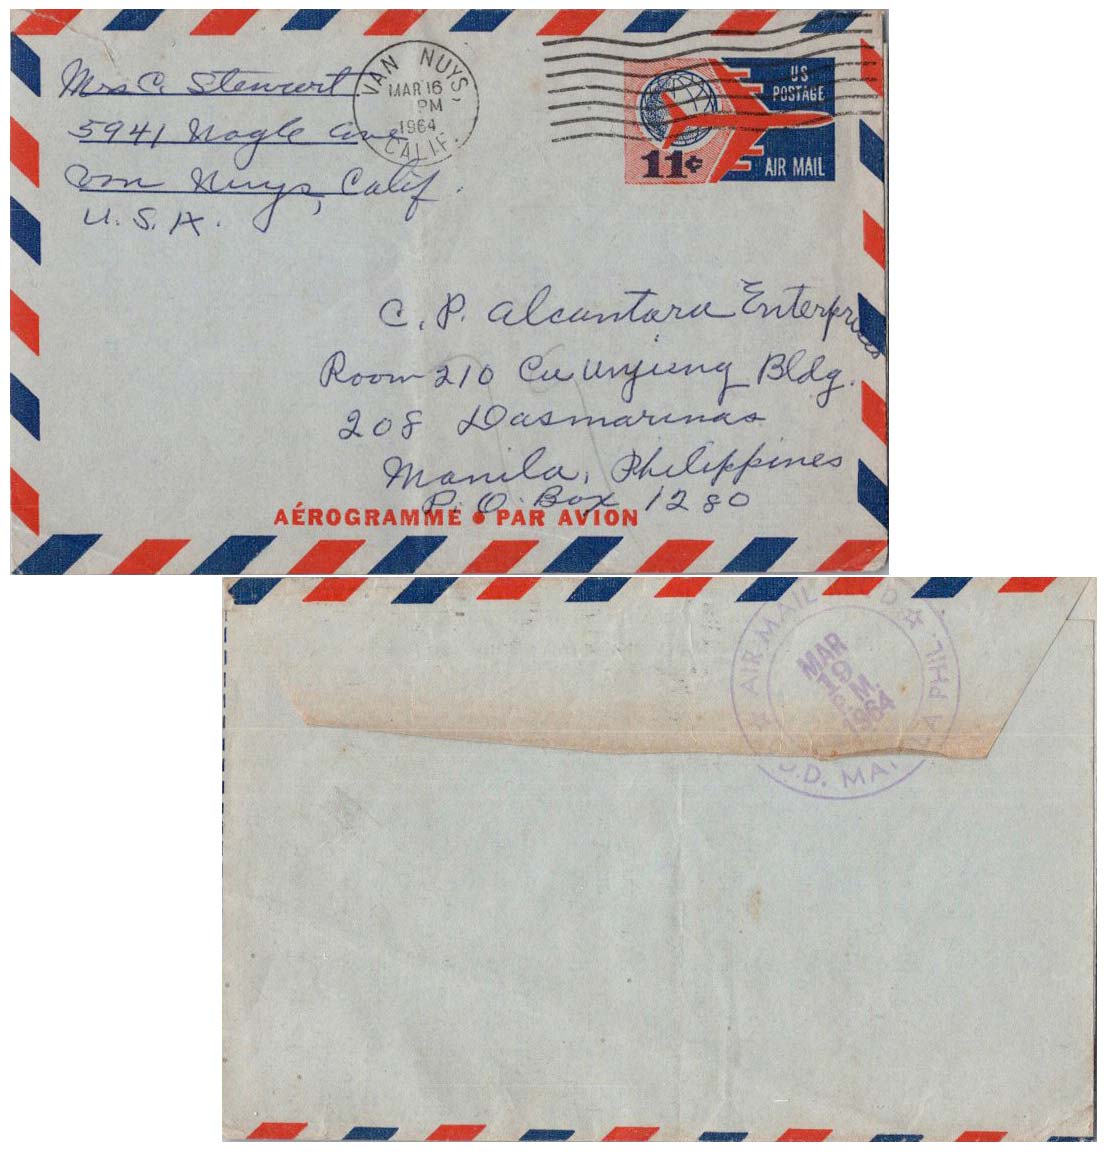 Mrs C. Stewart
5941 Nagle Ave
Van Nuys, Calif.
U.S.A.
VAN NUYS,
MAR 16
PM
1964
CALIF.
US
POSTAGE
11¢
AIR MAIL
C. P. Alcantara Enterprises
Room 210 Cu Unjieng Bldg.
208 Dasmarinas
Manila, Philippines
P.O. Box 1280
AÉROGRAMME • PAR AVION
AIR-MAIL
MAR
19
M.
1964
PHIL.